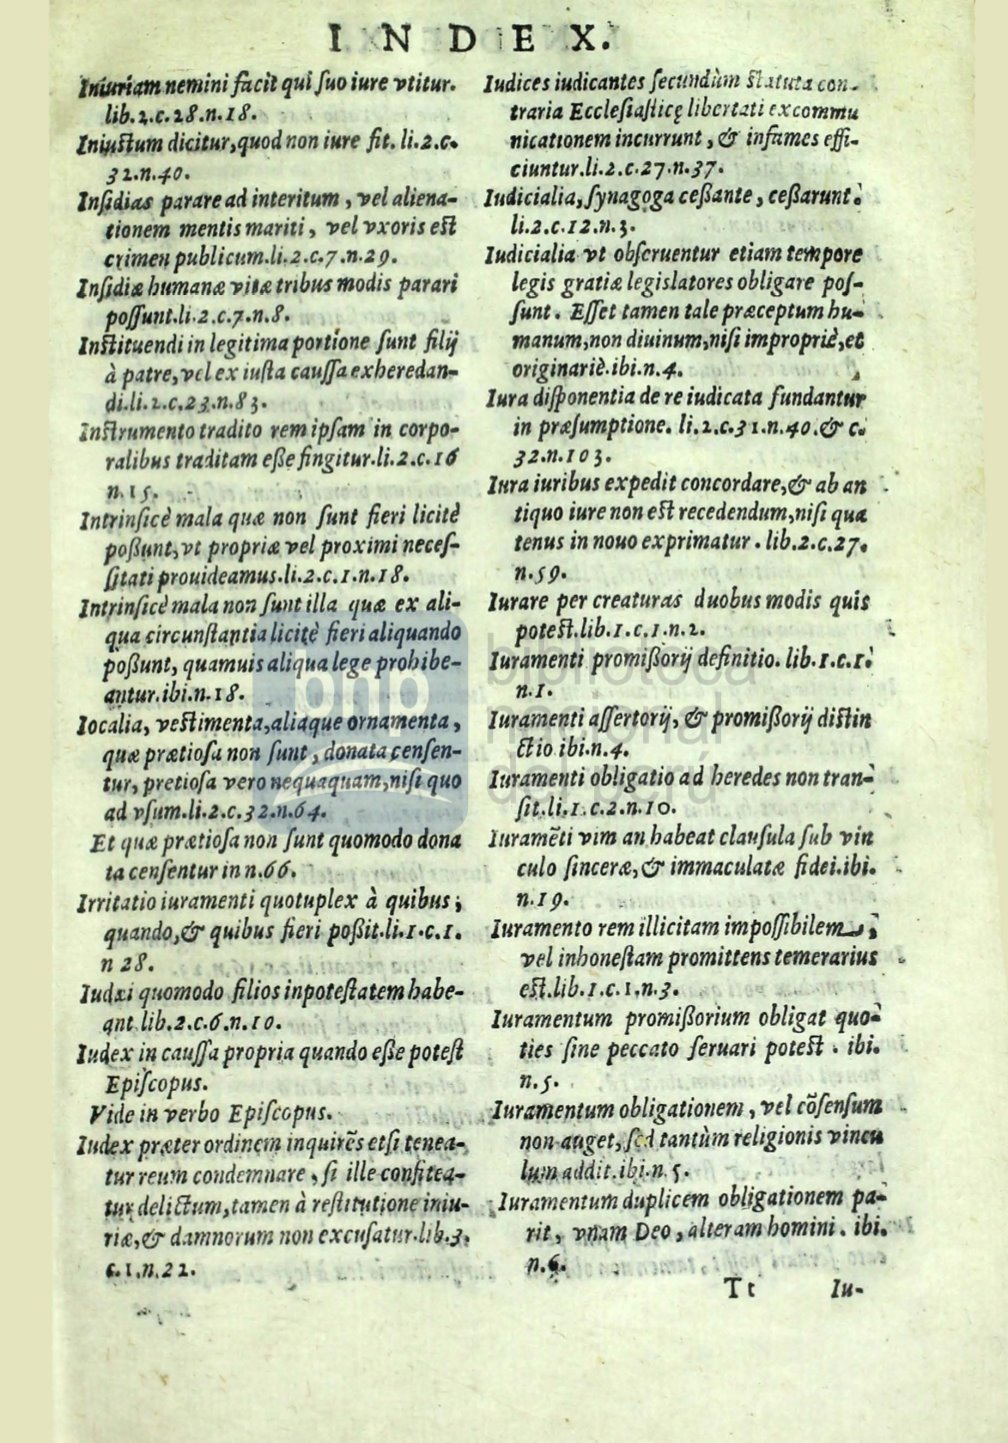 INDEX.
Iniuriam nemini facit qui ſuo iure vtitur.
lib.2.c.28.n.18.
Iniuſtum dicitur,quod non iure fit. li.2.c.
32.n.40.
Inſidias parare ad interitum, vel aliena-
tionem mentis mariti, vel vxoris eſt
crimen publicum.li.2.c.7.n.29.
Inſidiæ humanæ vitæ tribus modis parari
poſſunt.li.2.c.7.n.8.
Inſtituendi in legitima portione ſunt filij
à patre,vel ex iuſta cauſſa exheredan-
di.li.2.c.23.n.83.
Inſtrumento tradito rem ipſam in corpo-
ralibus traditam eße fingitur.li.2.c.16
n.15.
Intrinſicè mala quæ non ſunt fieri licitè
poßunt,vt propriæ vel proximi neceſ-
ſitati prouideamus.li.2.c.1.n.18.
Intrinſicè mala non ſunt illa quæ ex ali-
qua circunſtantia licitè fieri aliquando
poßunt, quamuis aliqua lege prohibe-
antur.ibi.n.18.
Iocalia, veſtimenta,aliaque ornamenta,
quæ prætioſa non ſunt, donata cenſen-
tur, pretioſa vero nequaquam,niſi quo
ad vſum.li.2.c.32.n.64.
Et quæ prætioſa non ſunt quomodo dona
ta cenſentur in n.66.
Irritatio iuramenti quotuplex à quibus,
quando,& quibus fieri poßit.li.1.c.1.
n 28.
Iudæi quomodo filios in poteſtatem habe-
ant.lib.2.c.6.n.10.
Iudex in cauſſa propria quando eße poteſt
Epiſcopus.
Vide in verbo Epiſcopus.
Iudex præter ordinem inquirẽs etſi tenea-
tur reum condemnare, ſi ille confitea-
tur delictum,tamen à reſtitutione iniu-
riæ,& damnorum non excuſatur.lib.3.
c.1.n.22.
Iudices iudicantes ſecundùm ſtatuta con-
traria Eccleſiaſticę libertati excommu
nicationem incurrunt, & infames effi-
ciuntur.li.2.c.27.n.37.
Iudicialia, ſynagoga ceßante, ceßarunt.
li.2.c.12.n.3.
Iudicialia vt obſeruentur etiam tempore
legis gratiæ legislatores obligare poſ-
ſunt. Eſſet tamen tale præceptum hu-
manum,non diuinum,niſi impropriè,et
originariè.ibi.n.4.
Iura diſponentia de re iudicata fundantur
in præſumptione. li.2.c.31.n.40.& c.
32.n.103.
Iura iuribus expedit concordare,& ab an
tiquo iure non eſt recedendum,niſi qua
tenus in nouo exprimatur. lib.2.c.27.
n.59.
Iurare per creaturas duobus modis quis
poteſt.lib.1.c.1.n.2.
Iuramenti promißorij definitio. lib.1.c.1.
n.1.
Iuramenti aſſertorij, & promißorij diſtin
ctio ibi.n.4.
Iuramenti obligatio ad heredes non tran-
ſit.li.1.c.2.n.10.
Iuramẽti vim an habeat clauſula ſub vin
culo ſinceræ,& immaculatæ fidei.ibi.
n.19.
Iuramento rem illicitam impoſſibilem,
vel inhoneſtam promittens temerarius
eſt.lib.1.c.1.n.3.
Iuramentum promißorium obligat quo-
ties ſine peccato ſeruari poteſt. ibi.
n.5.
Iuramentum obligationem, vel cõſenſum
non auget, ſed tantùm religionis vincu
lum addit.ibi.n.5.
Iuramentum duplicem obligationem pa-
rit, vnam Deo, alteram homini. ibi.
n.6.
Tt Iu-
bnp biblioteca
nacional
del perú